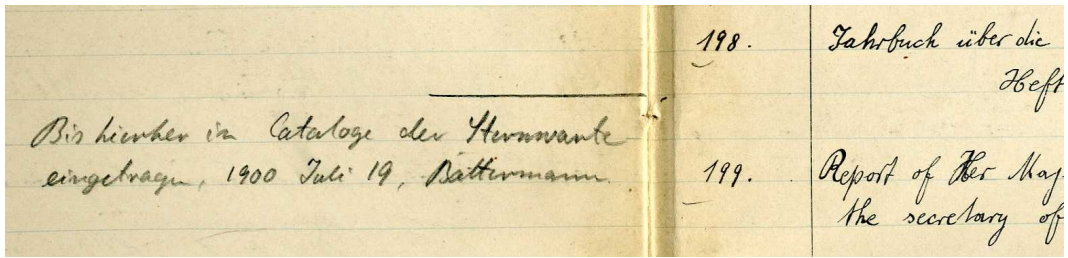 Bis hierher in Cataloge der Sternwarte
eingetragen, 1900 Juli 19, Battermann
198. Jahrbuch über die
Heft
199. Report of Her Maj.
the secretary of